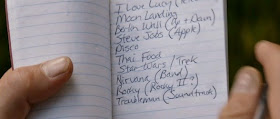 I Love Lucy (
Moon Landing
Berlin Wall (Up + Down)
Steve Jobs (Apple)
Disco
Thai Food
Star Wars / Trek
Nirvana (Band)
Rocky (Rocky II?)
Troutman (Soundtrack)